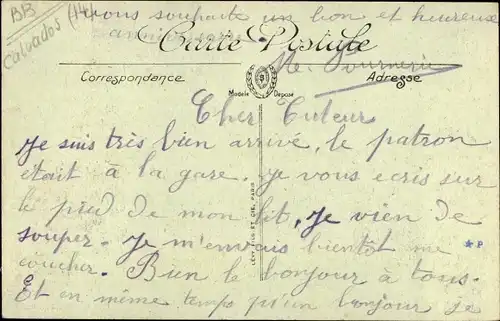 BB
Calvados (14)
vous souhaite un bon et heureuse
anniversaire
Carte Postale
M. Fournerie
Correspondance
Adresse
Modèle Déposé
Cher Tuteur
Je suis très bien arrivé, le patron
etait à la gare. je vous ecris sur
le pied de mon lit, Je vien de
souper. Je m'envais bientot me
coucher. Bien le bonjour à tous.
Et en même temps qu'un bonjour je
LÉVY FILS ET CIE, PARIS
★P